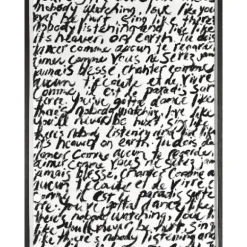 nobody watching, love like you'll
never be hurt. Sing like there's
nobody listening and live like
its heaven on earth. Tu dois
danser comme aucun te regarde
aimer comme vous ne serez
jamais blessé, chanter comme
aucun t'ecoute et de vivre
comme c'est le paradis sur
terre. You've gotta dance like
there's nobody watching, love like
you'll never be hurt. Sing like
there's nobody listening and live like
its heaven on earth. Tu dois danser
comme aucun te regarde
aimer comme vous ne serez
jamais blessé, chanter comme
aucun t'ecoute et de vivre comme
c'est le paradis sur
terre. You've gotta dance like
there's nobody watching, love
like you'll never be hurt. Sing
like there's nobody listening and